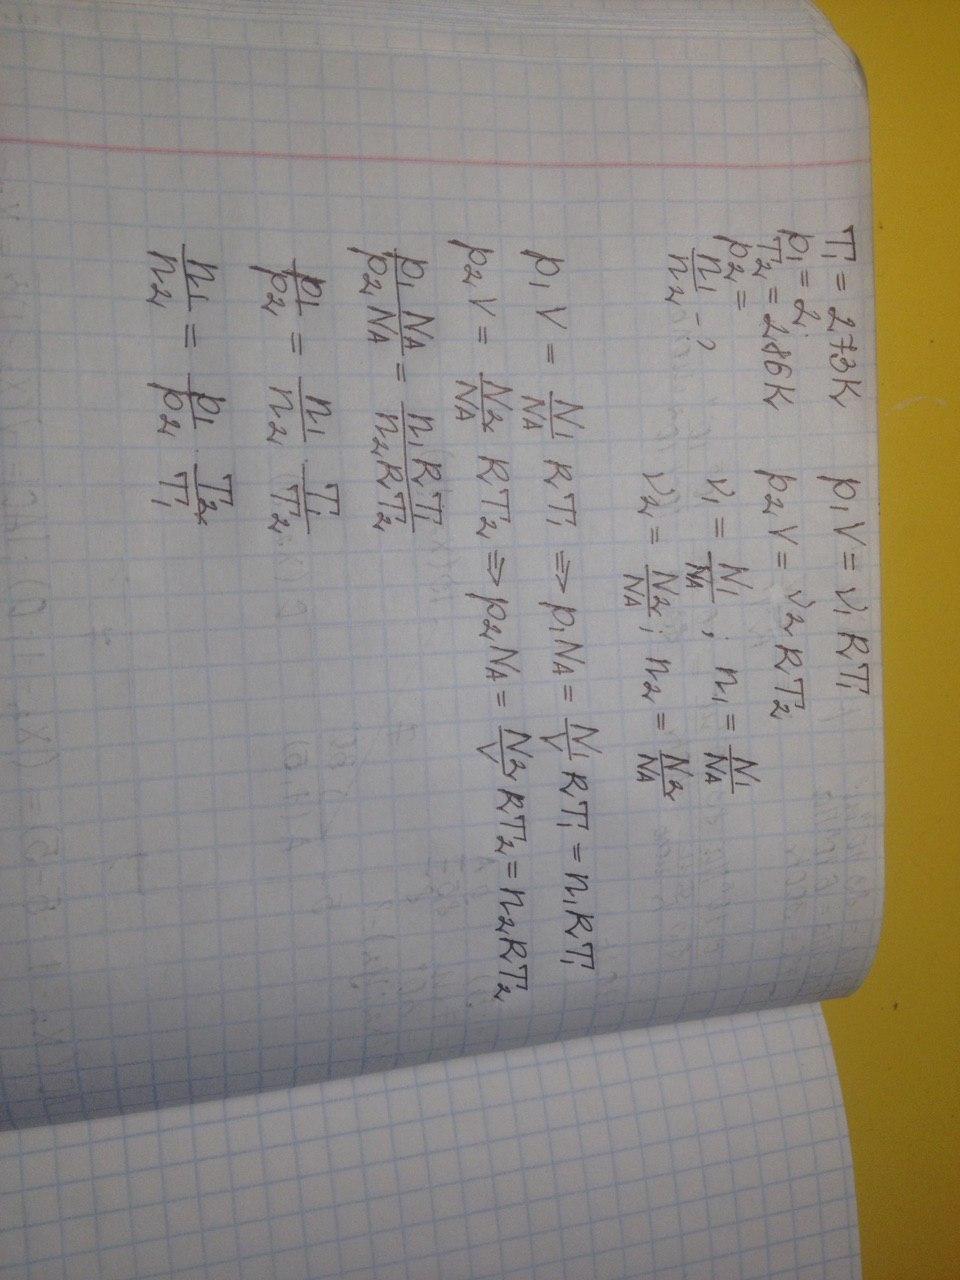 T₁ = 273K
p₁ = 2;
T₂ = 286K
p₂ =
n₁/n₂ - ?
p₁V = ν₁RT₁
p₂V = ν₂RT₂
ν₁ = N₁/NA ; n₁ = N₁/NA
ν₂ = N₂/NA ; n₂ = N₂/NA
p₁V = N₁/NA RT₁ ⇒ p₁NA = N₁/V RT₁ = n₁RT₁
p₂V = N₂/NA RT₂ ⇒ p₂NA = N₂/V RT₂ = n₂RT₂
p₁NA/p₂NA = n₁RT₁/n₂RT₂
p₁/p₂ = n₁/n₂ · T₁/T₂
n₁/n₂ = p₁/p₂ · T₂/T₁